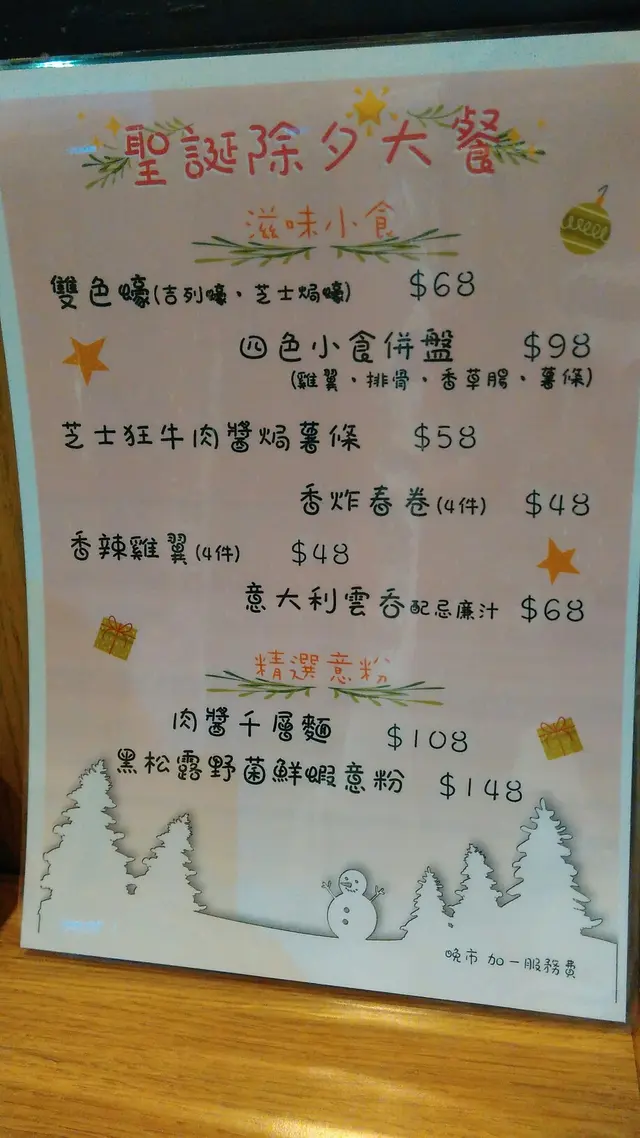 聖誕除夕大餐
滋味小食
雙色蠔(吉列蠔，芝士焗蠔) $68
四色小食併盤 $98
(雞翼，排骨，香草腸，薯條)
芝士狂牛肉醬焗薯條 $58
香炸春卷(4件) $48
香辣雞翼(4件) $48
意大利雲吞配忌廉汁 $68
精選意粉
肉醬千層麵 $108
黑松露野菌鮮蝦意粉 $148
晚市 加一服務費